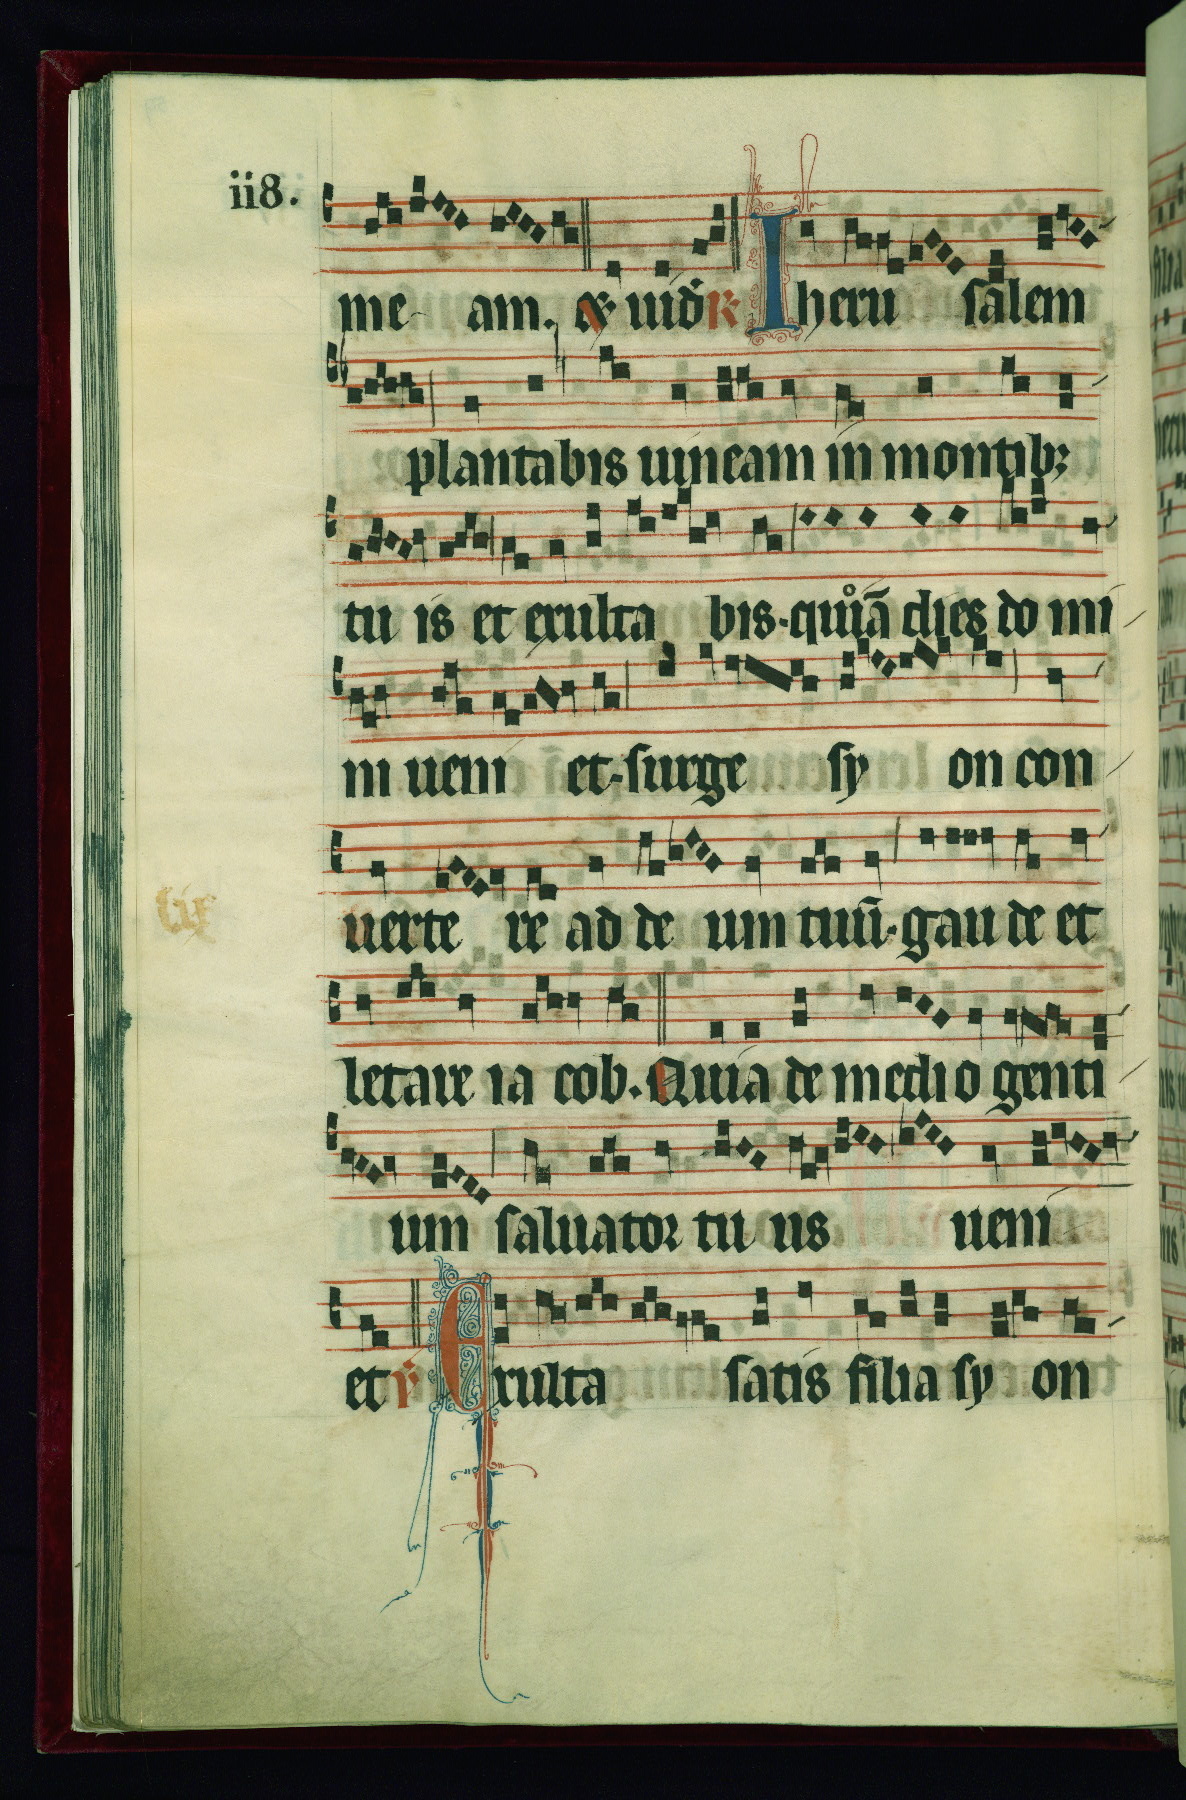 ii8.
me am. et uiđ R Iheru salem
plantabis uineam in montibꝫ
tu is et exulta bis. qm̄ dies do mi
ni ueni et surge sy on con
uerte re ad de um tuū. gau de et
lix
letare ia cob. Quia de medio genti
um saluator tu us ueni
et ℣ Exulta satis filia sy on